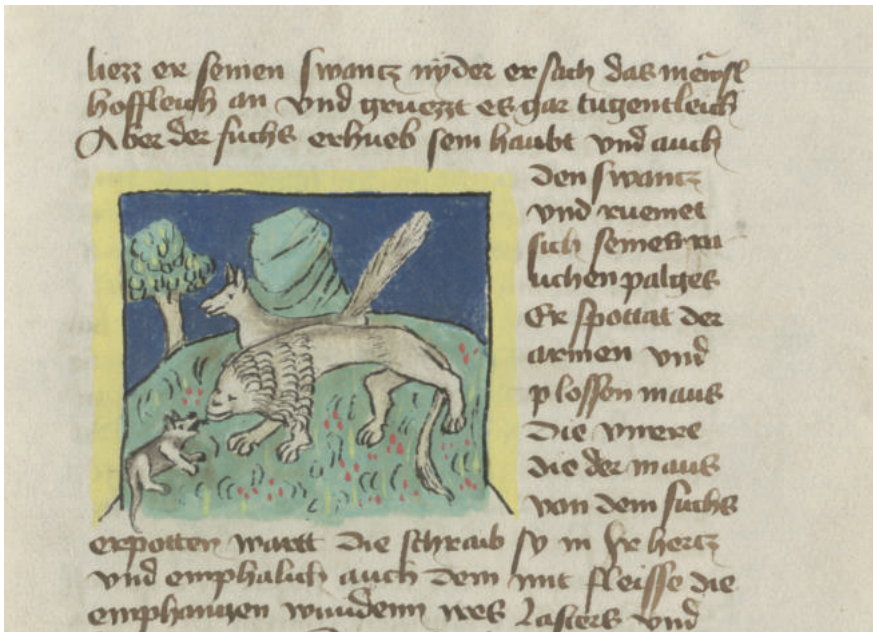 liezz er seinen swantz nyder er sach das mewsl
hoffleich an vnd gruezzt es gar tugentleich
Aber der fuchs erhueb sein haubt vnd auch
den swantz
vnd ruemet
sich seines ra
uchen palges
Er spottat der
armen vnd
plossen maus
Die vnere
die der maus
von dem fuchs
erpotten wartt Die schraib sy in Ir hertz
vnd emphalich auch dem mit fleisse die
emphangen wunden wes lasters vnd